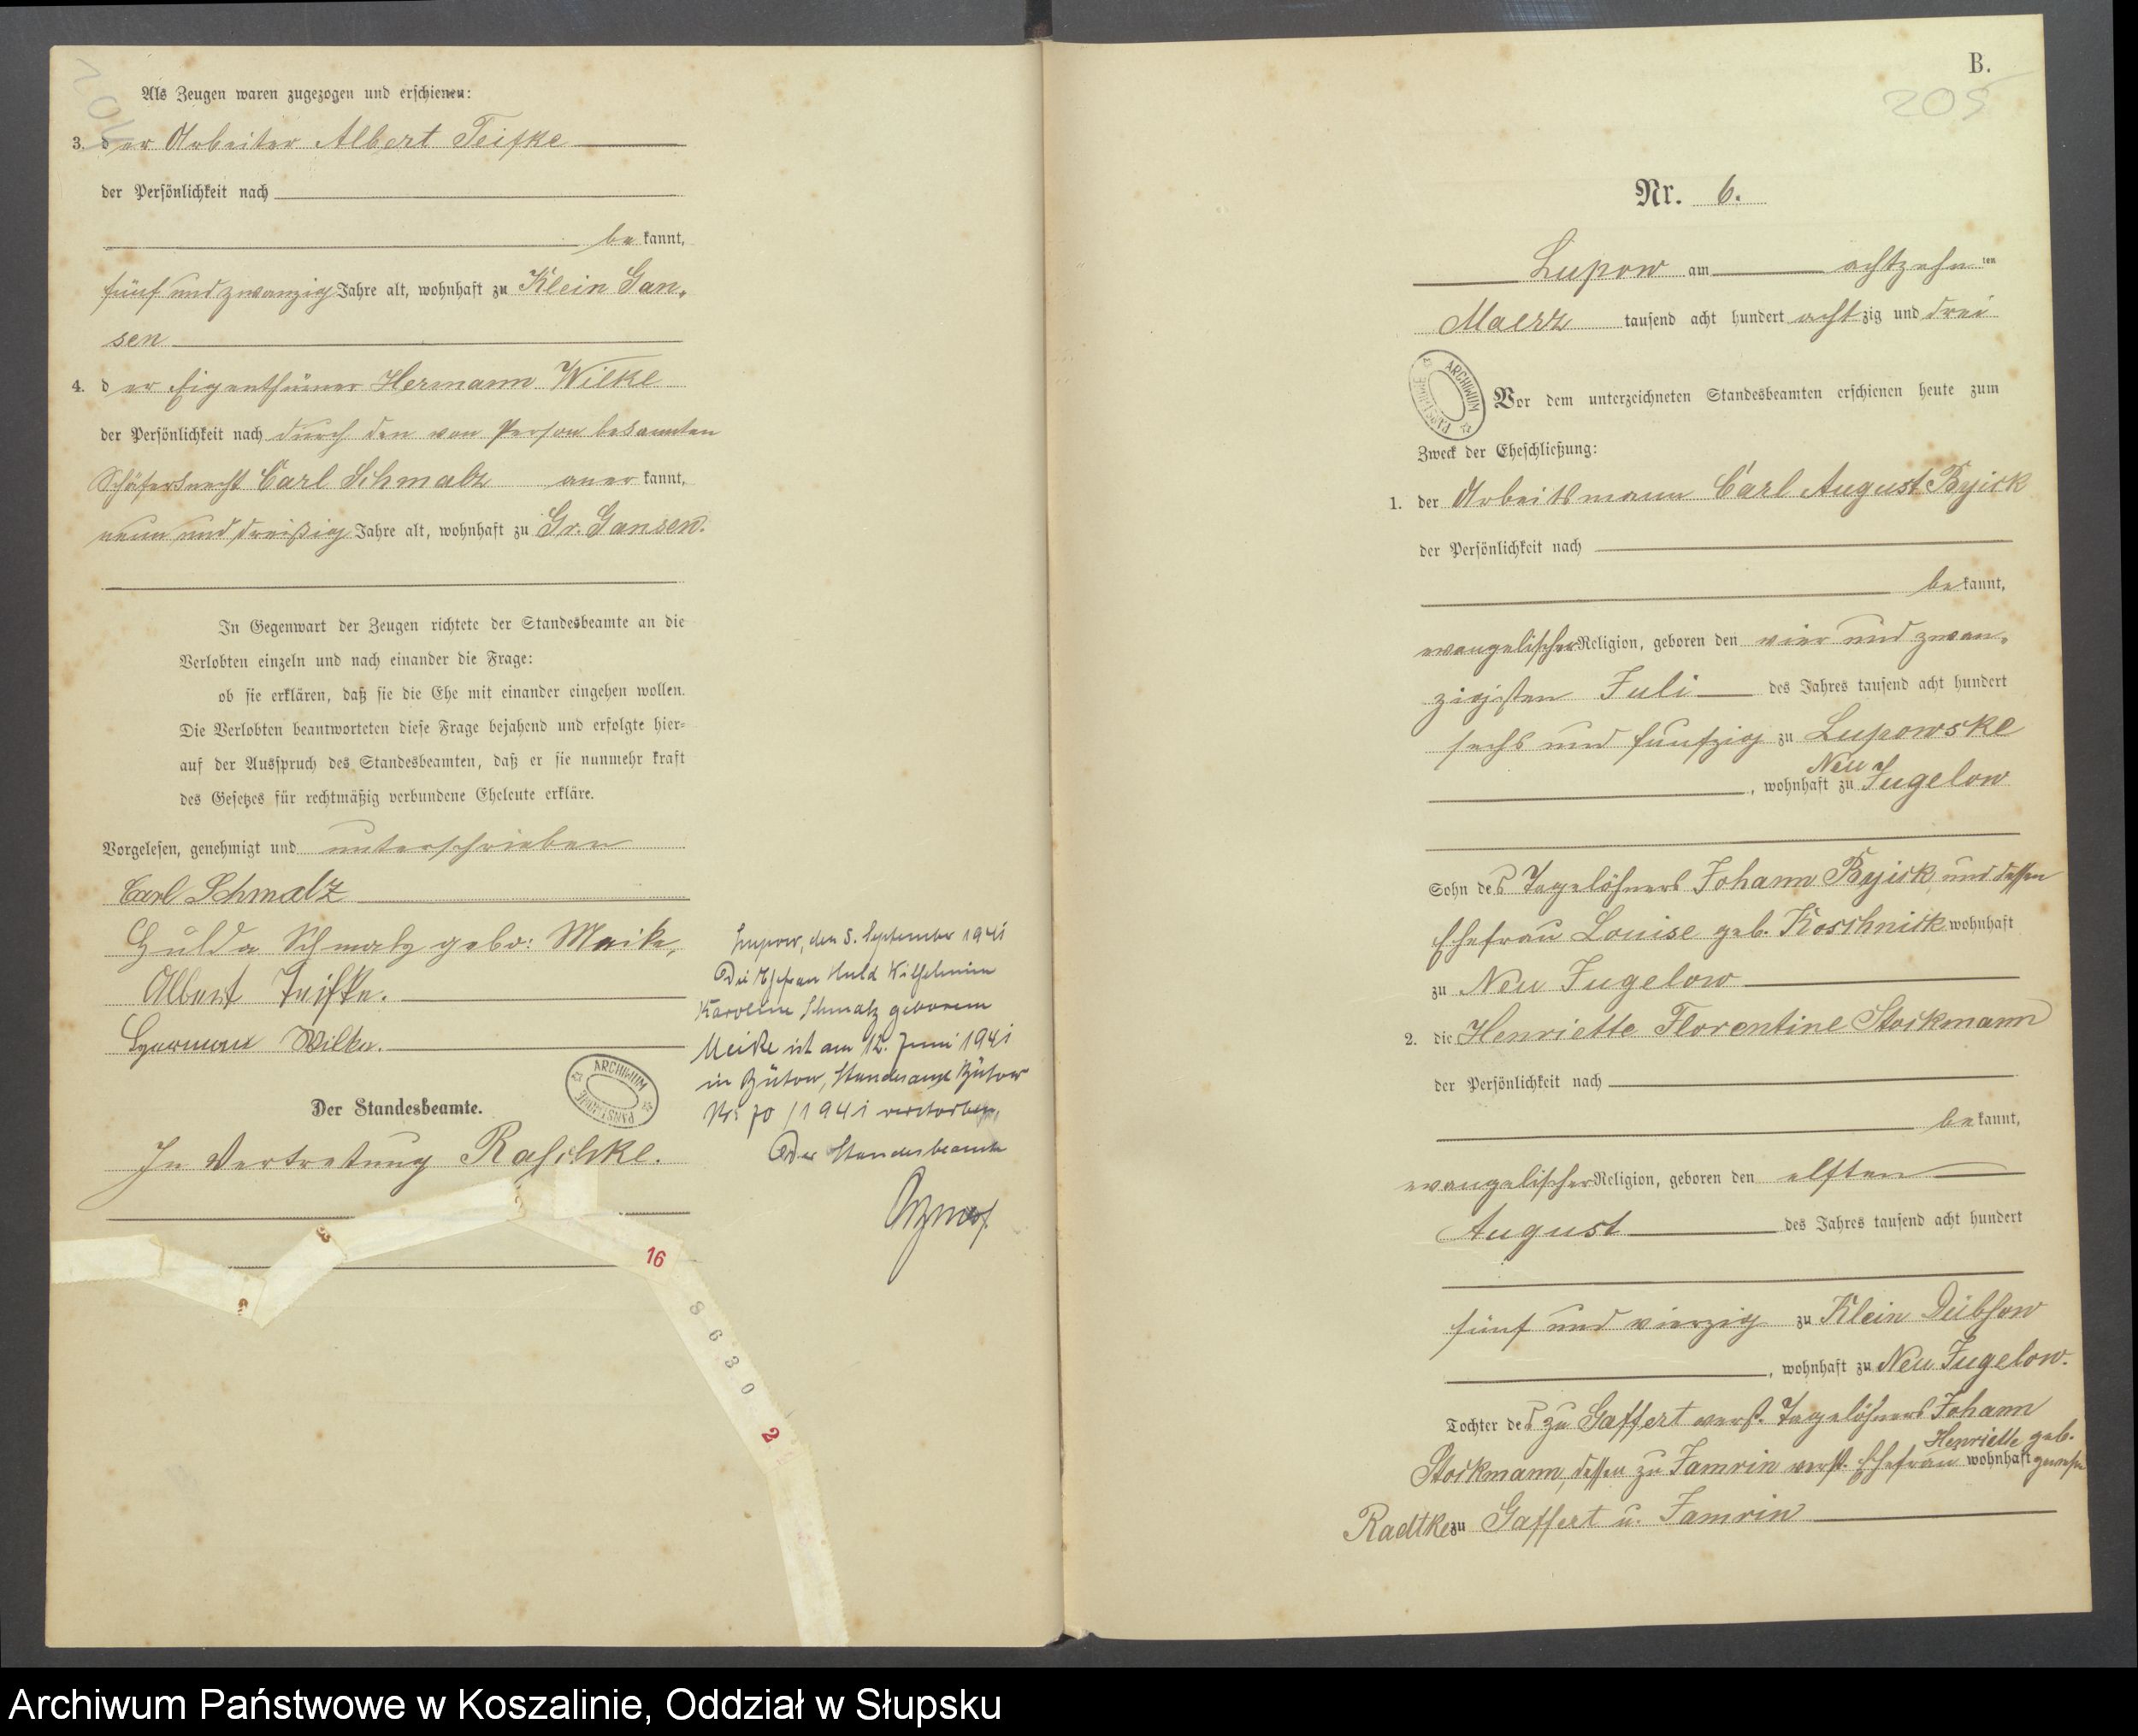 204
Als Zeugen waren zugezogen und erschienen:
3. der Arbeiter Albert Teifke
der Persönlichkeit nach
be kannt,
fünf und zwanzig Jahre alt, wohnhaft zu Klein Gan-
sen
4. der Eigenthümer Hermann Wilke
der Persönlichkeit nach durch den von Person bekannten
Schäferknecht Carl Schmalz aner kannt,
neun und dreißig Jahre alt, wohnhaft zu Gr. Gansen.
In Gegenwart der Zeugen richtete der Standesbeamte an die
Verlobten einzeln und nach einander die Frage:
ob sie erklären, daß sie die Ehe mit einander eingehen wollen.
Die Verlobten beantworteten diese Frage bejahend und erfolgte hier-
auf der Ausspruch des Standesbeamten, daß er sie nunmehr kraft
des Gesetzes für rechtmäßig verbundene Eheleute erkläre.
Vorgelesen, genehmigt und unterschrieben
Carl Schmalz
Hulda Schmalz gebr: Meike,
Albert Teifke.
Herman Wilke.
Der Standesbeamte.
In Vertretung Raschke.
Lupow, den 5. September 1941
Die Ehefrau Huld Wilhelmine
Karoline Schmalz geborene
Meike ist am 12. Juni 1941
in Bütow, Standesamt Bütow
Nr: 70 / 1941 verstorben,
Der Standesbeamte
ARCHIWUM PAŃSTWOWE
16
8630
2
B.
205
Nr. 6.
Lupow am achtzehn ten
Maerz tausend acht hundert acht zig und drei
ARCHIWUM PAŃSTWOWE
Vor dem unterzeichneten Standesbeamten erschienen heute zum
Zweck der Eheschließung:
1. der Arbeitsmann Carl August Byick
der Persönlichkeit nach
be kannt,
evangelischer Religion, geboren den vier und zwan-
zigsten Juli des Jahres tausend acht hundert
sechs und funfzig zu Lupowske
, wohnhaft zu Neu Jugelow
Sohn des Tagelöhners Johann Byick und dessen
Ehefrau Louise geb. Koschnick wohnhaft
zu Neu Jugelow
2. die Henriette Florentine Stockmann
der Persönlichkeit nach
be kannt,
evangelischer Religion, geboren den elften
August des Jahres tausend acht hundert
fünf und vierzig zu Klein Dübsow
, wohnhaft zu Neu Jugelow.
Tochter des zu Gaffert verst. Tagelöhners Johann
Stockmann, dessen zu Jamrin verst. Ehefrau Henriette geb. wohnhaft gewesen
Radtke zu Gaffert u. Jamrin
Archiwum Państwowe w Koszalinie, Oddział w Słupsku